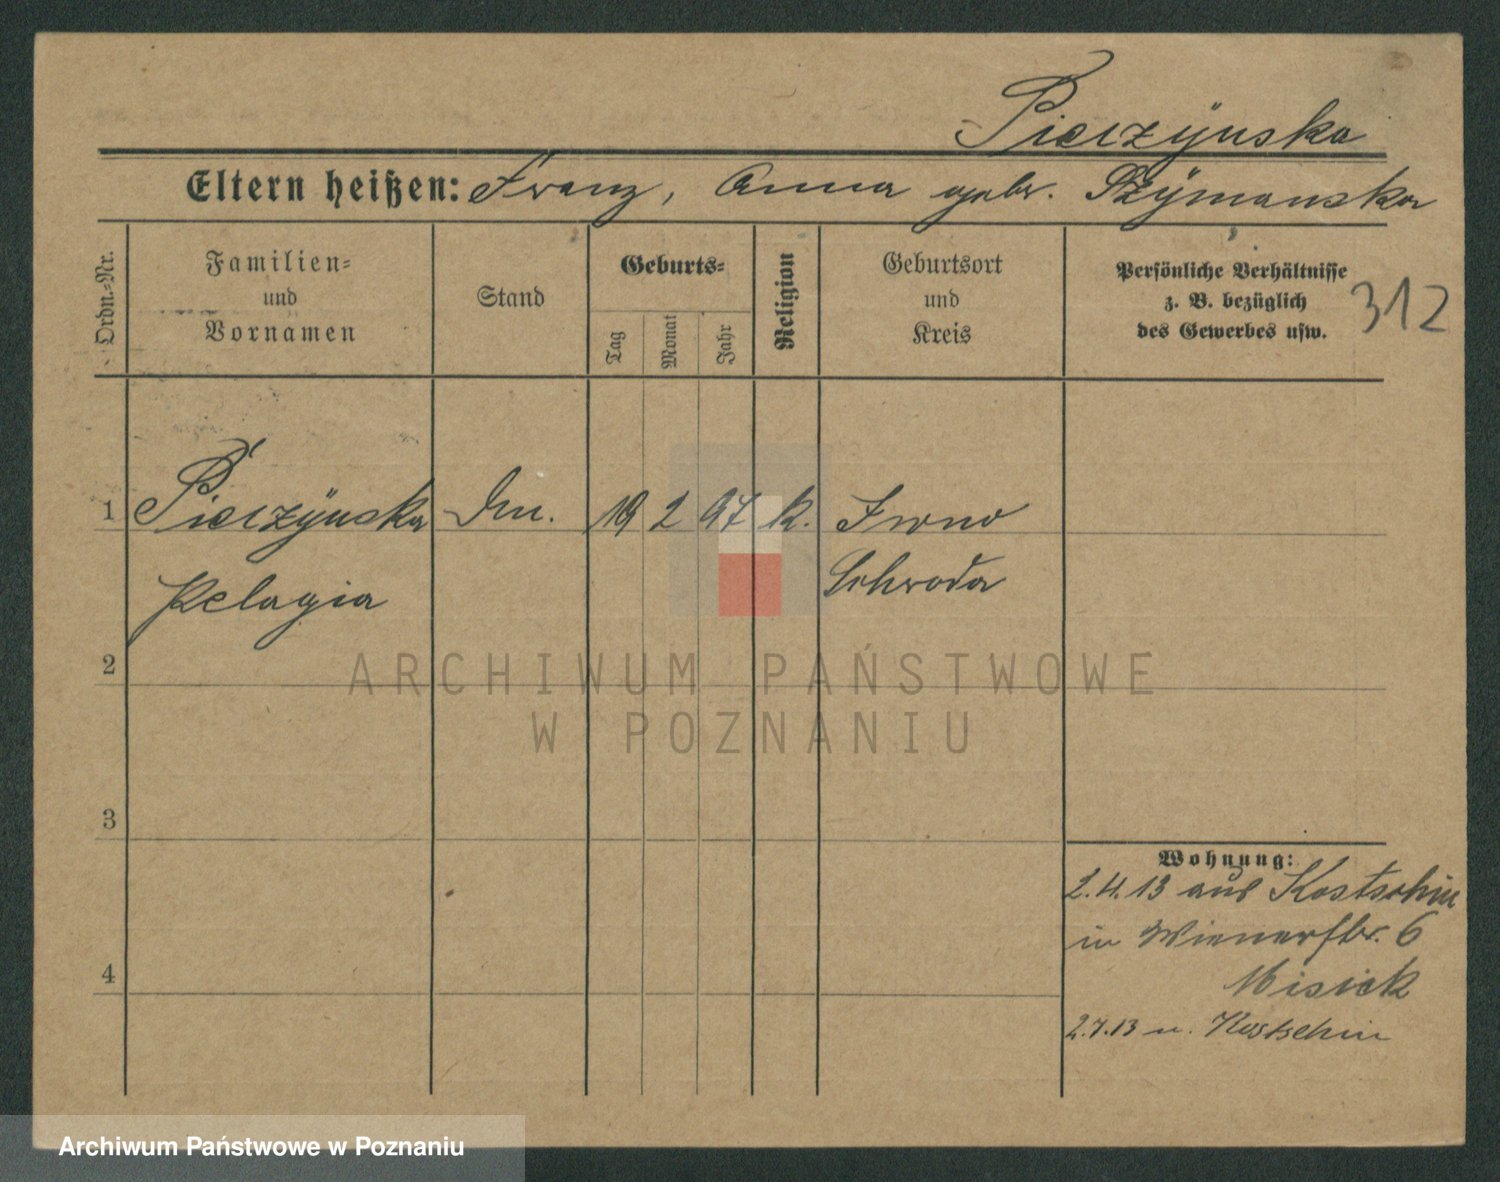 Pierzÿnska
Eltern heißen: Franz, Anna geb. Szÿmanska
Ordn.-Nr.
Familien-
und
Vornamen
Stand
Geburts-
Tag
Monat
Jahr
Religion
Geburtsort
und
Kreis
Persönliche Verhältnisse
z. B. bezüglich
des Gewerbes usw.
312
1 Pierzÿnska 19 2 97 k. Iwno
Pelagia Schroda
2
ARCHIWUM PAŃSTWOWE
W POZNANIU
3
4
Wohnung:
2.4.13 aus Kostschin
in Wienerstr. 6
Misiek
2.7.13 n. Kostschin
Archiwum Państwowe w Poznaniu